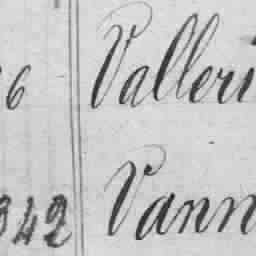 6 Valleri
342 Vann